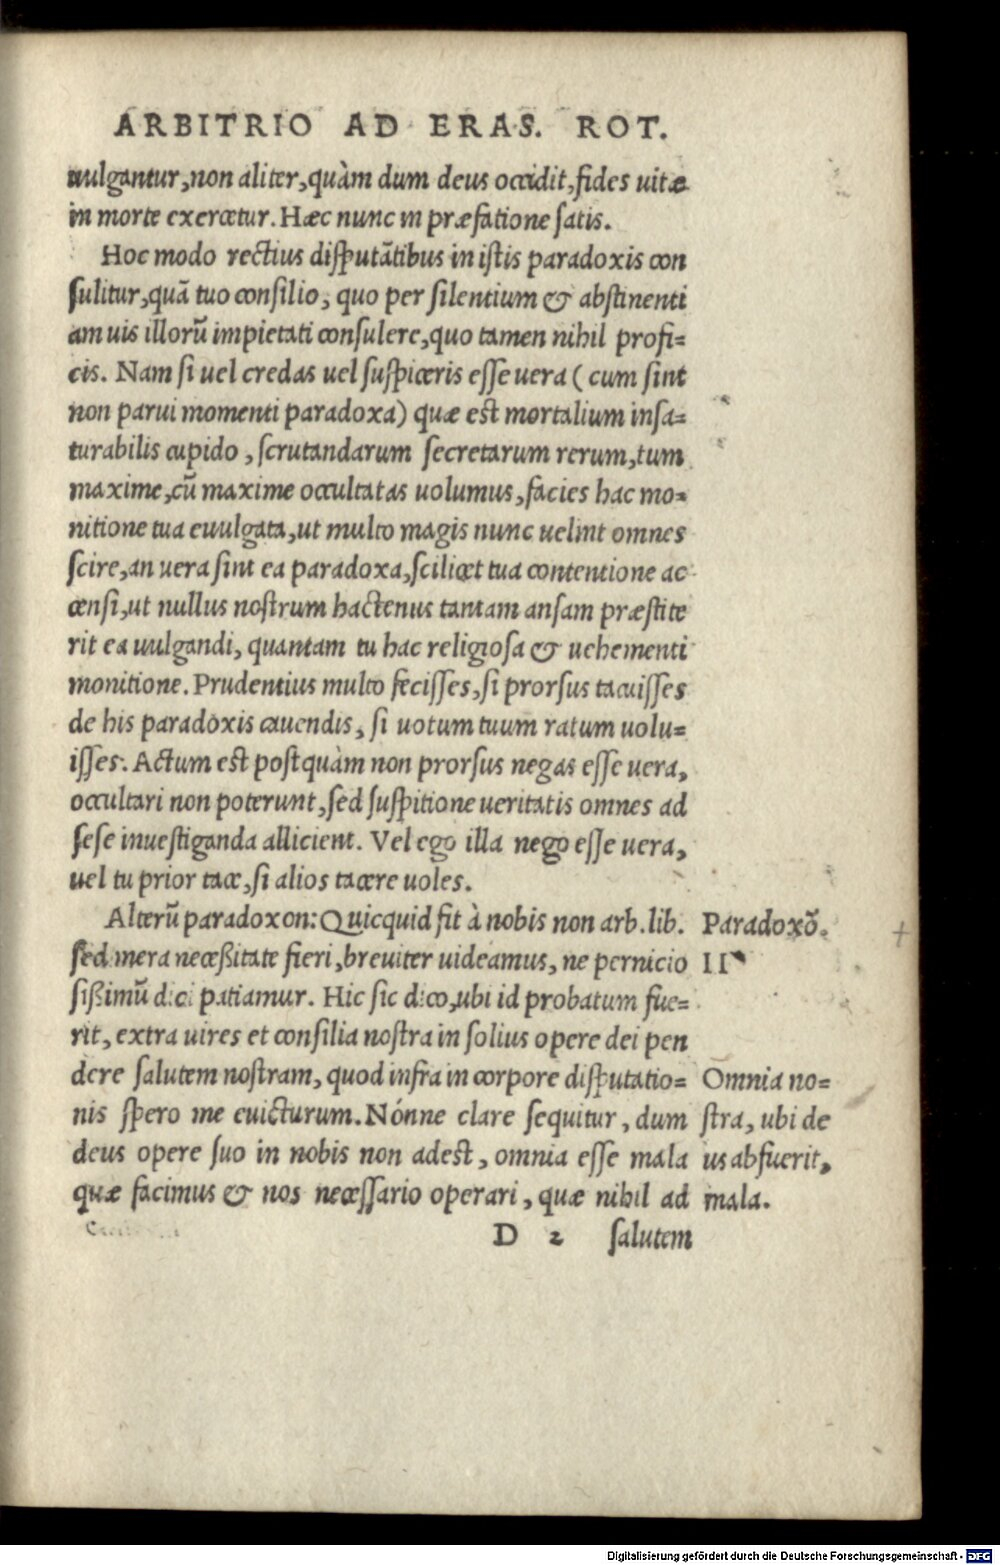 ARBITRIO AD ERAS. ROT.
uulgantur, non aliter, quàm dum deus occidit, fides uitæ
in morte exercetur. Hæc nunc in præfatione satis.
Hoc modo rectius disputãtibus in istis paradoxis con
sulitur, quã tuo consilio, quo per silentium & abstinenti
am uis illorũ impietati consulere, quo tamen nihil profi=
cis. Nam si uel credas uel suspiceris esse uera ( cum sint
non parui momenti paradoxa) quæ est mortalium insa=
turabilis cupido, scrutandarum secretarum rerum, tum
maxime, cũ maxime occultatas uolumus, facies hac mo=
nitione tua euulgata, ut multo magis nunc uelint omnes
scire, an uera sint ea paradoxa, scilicet tua contentione ac
censi, ut nullus nostrum hactenus tantam ansam præstite
rit ea uulgandi, quantam tu hac religiosa & uehementi
monitione. Prudentius multo fecisses, si prorsus tacuisses
de his paradoxis cauendis, si uotum tuum ratum uolu=
isses. Actum est postquàm non prorsus negas esse uera,
occultari non poterunt, sed suspitione ueritatis omnes ad
sese inuestiganda allicient. Vel ego illa nego esse uera,
uel tu prior tace, si alios tacere uoles.
Alterũ paradoxon: Quicquid fit à nobis non arb. lib.
Paradoxõ.
sed mera neceßitate fieri, breuiter uideamus, ne pernicio
II
sißimũ dici patiamur. Hic sic dico, ubi id probatum fue=
rit, extra uires et consilia nostra in solius opere dei pen
dere salutem nostram, quod infra in corpore disputatio=
Omnia no=
nis spero me euicturum. Nónne clare sequitur, dum
stra, ubi de
deus opere suo in nobis non adest, omnia esse mala
us abfuerit,
quæ facimus & nos necessario operari, quæ nihil ad
mala.
D 2 salutem
Digitalisierung gefördert durch die Deutsche Forschungsgemeinschaft - DFG